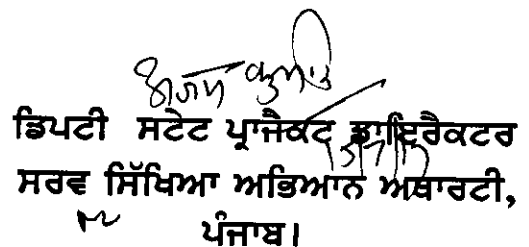 ਡਿਪਟੀ ਸਟੇਟ ਪ੍ਰਾਜੈਕਟ ਡਾਇਰੈਕਟਰ
ਸਰਵ ਸਿੱਖਿਆ ਅਭਿਆਨ ਅਥਾਰਟੀ,
ਪੰਜਾਬ।